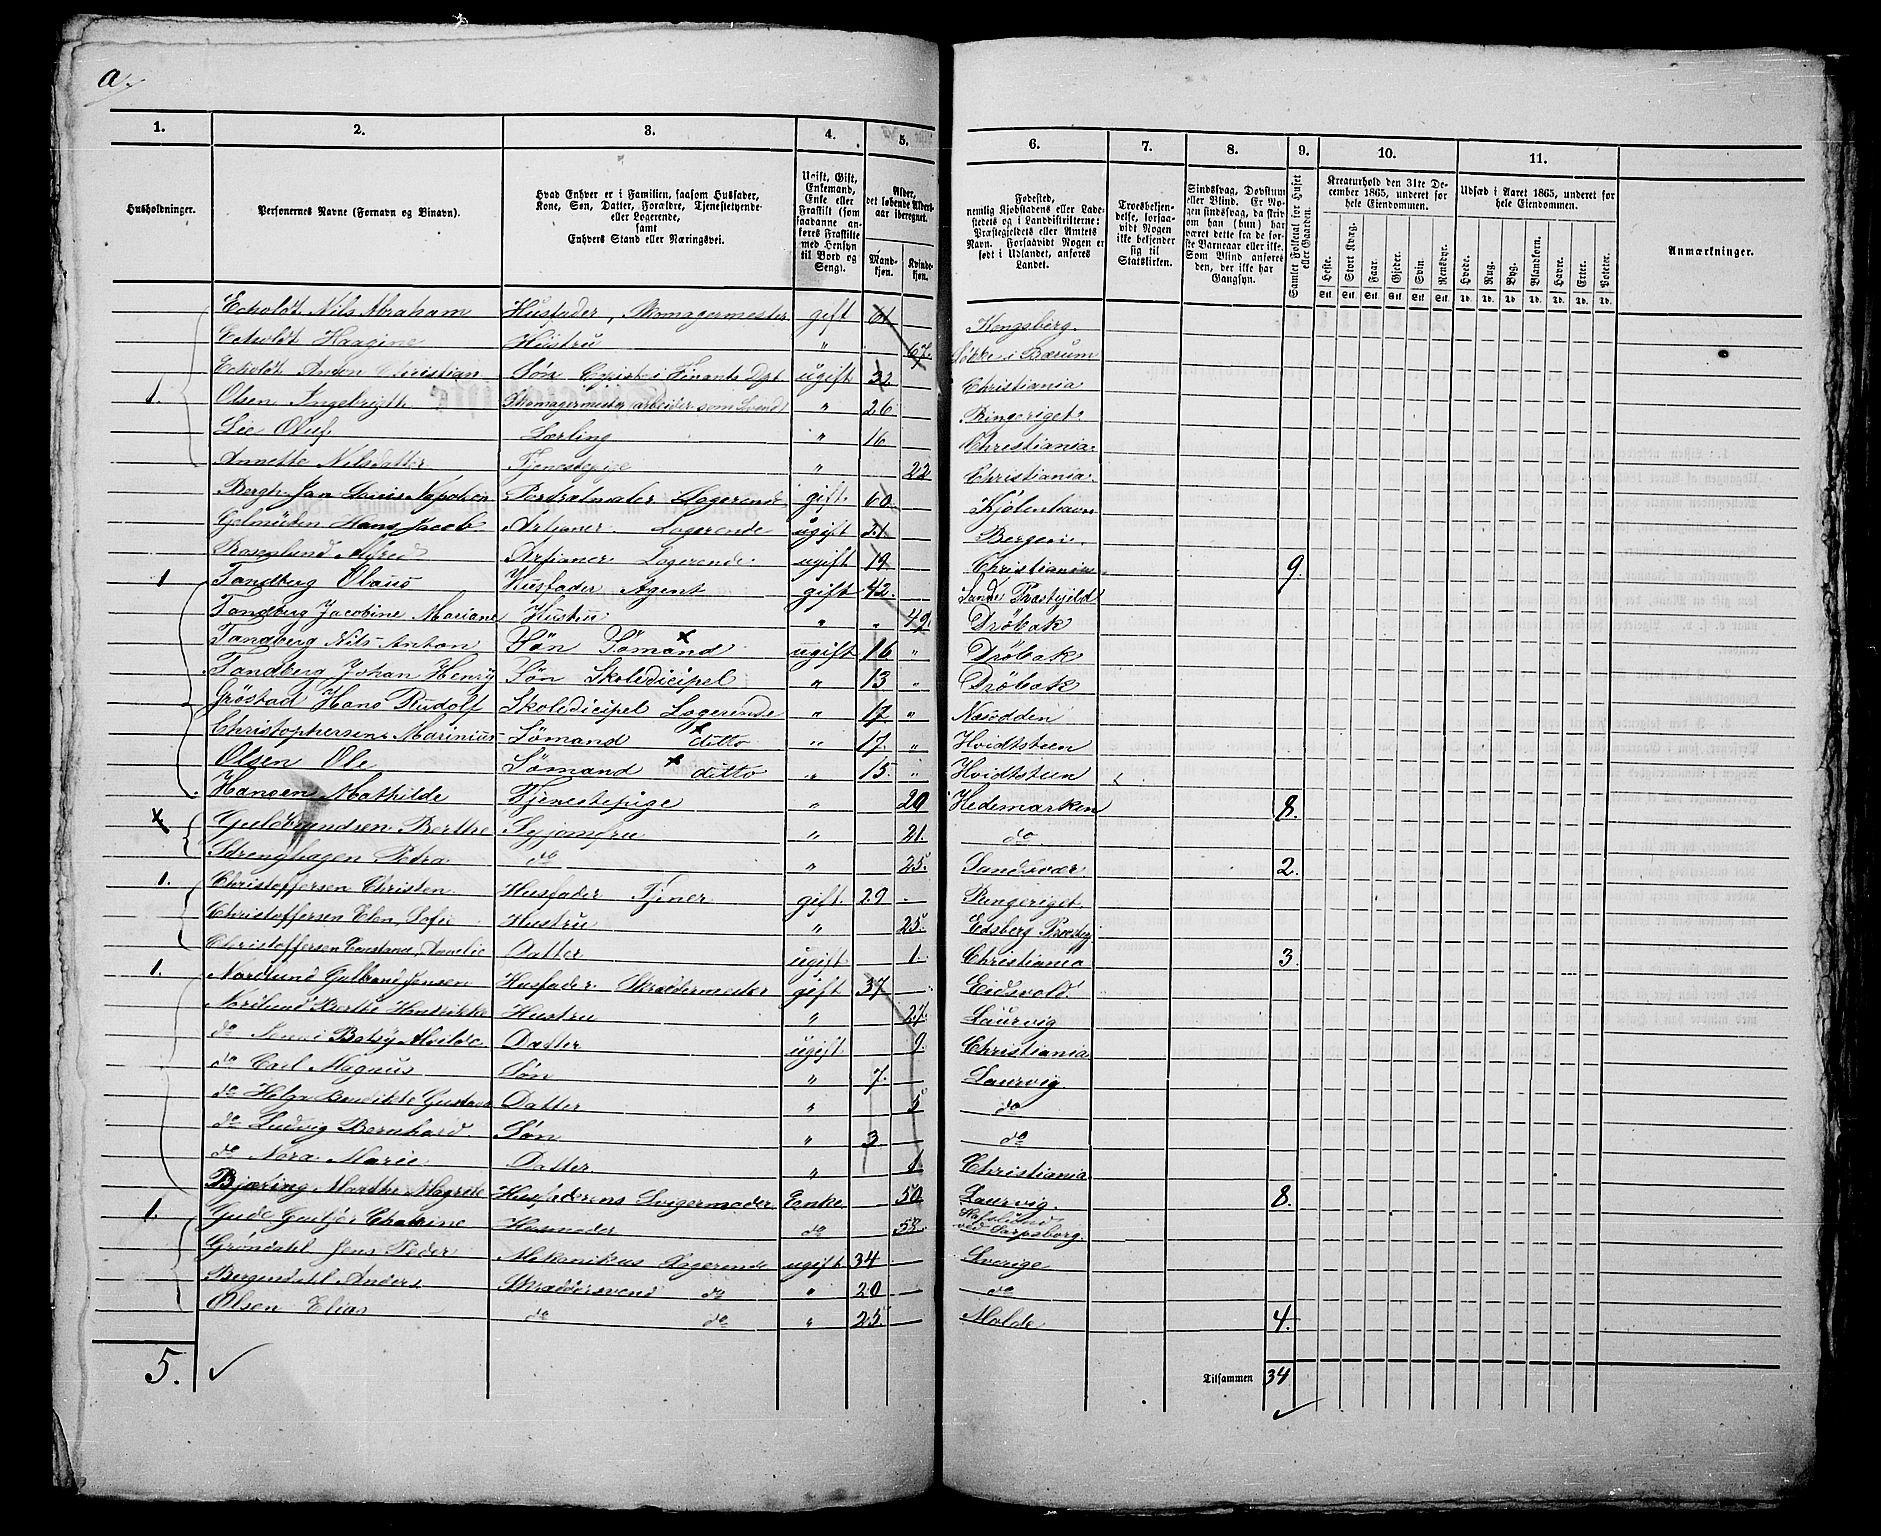 a.
1. 2. 3. 4. 5. 6. 7. 8. 9. 10. 11.
Husholdninger.
Personernes Navne (Fornavn og Binavn).
Hvad Enhver er i Familien, saasom Husfader, Kone, Søn, Datter, Forældre, Tjenestetyende eller Logerende, samt Enhvers Stand eller Næringsvei.
Ugift, Gift, Enkemand, Enke eller Fraskilt (som saadanne anføres Fraskilte med Hensyn til Bord og Seng).
Alder, det løbende Aldersaar iberegnet.
Mandkjøn. Kvindekjøn.
Fødested, nemlig Kjøbstadens eller Ladestedets og i Landdistrikterne: Præstegjeldets eller Amtets Navn. Forsaavidt Nogen er født i Udlandet, anføres Landet.
Troesbekjendelse, forsaavidt Nogen ikke bekjender sig til Statskirken.
Sindssvag, Døvstum eller Blind. Er Nogen sindssvag, da skrives om han (hun) har været dette fra de første Barneaar eller ikke. Som Blind anføres den, der ikke har Gangsyn.
Samlet Folketal for Huset eller Gaarden.
Kreaturhold den 31te December 1865, underet for hele Eiendommen.
Heste. Stort Kvæg. Faar. Gjeder. Svin. Rensdyr.
Stk. Stk. Stk. Stk. Stk. Stk.
Udsæd i Aaret 1865, underet for hele Eiendommen.
Hvede. Rug. Byg. Blandkorn. Havre. Erter. Poteter.
Td. Td. Td. Td. Td. Td. Td.
Anmærkninger.
Eckoldt Nils Abraham Husfader, Skomagermester gift 61 Kongsberg.
Eckoldt Haagine Hustru " 67. Løkke i Bærum
Eckoldt Anton Christian Søn Copist i Finants Dpt ugift 32 Christiania
1. Olsen Ingebrigth Skomagermester arbeider som Svend " 26 Ringeriget.
Lie Oluf Lærling " 16 Christiania.
Annette Nilsdatter Tjenestepige " 22 Christiania.
Bergh Jan Louis Napoleon Portrætmaler Logerende gift. 60 Kjøbenhavn
Hans Jacob Logerende ugift 21 Bergen.
Rosenlund Alfred Logerende ugift 19 Christiania 9.
1 Tandberg Olaus Husfader Agent gift 42. Sande Præstegjeld
Tandberg Jacobine Mariane Hustru " " 49. Drøbak
Tandberg Nils Anton Søn Sømand x ugift 16 " Drøbak
Tandberg Johan Henry Søn Skoledicipel " 13 " Drøbak
Grøstad Hans Rudolf Skoledicipel Logerende " 17 " Næsodden
Christophersen Marinius Sømand x ditto " 17. " Hvidtsteen
Olsen Ole Sømand x ditto " 15. " Hvidtsteen
Hansen Mathilde Tjenestepige " 20 Hedemarken 8.
x Guldbrandsen Berthe Syjomfru " 21. do
Strenghagen Petra do " 25. Sandsvær 2.
1. Christoffersen Christen Husfader Tjener gift. 29 Ringeriget.
Christoffersen Elen Sofie Hustru " 25. Edsberg Præstegj
Christoffersen Constance Amalie Datter ugift 1. Christiania 3.
1. Nordlund Gulbrand Jensen Husfader Skræddermester gift 37 Eidsvold
Nordlund Berthe Hendrikke Hustru " 27. Laurvig
do Betsy Datter ugift 9. Christiania
do Carl Magnus Søn " 7. Laurvig.
do Helga Benedikte Datter " 5 do
do Ludvig Bernhard. Søn " 3 do
do Nora Marie Datter. " 1. Christiania
Bjæring Marthe Magrete Husfaderens Svigermoder Enke 50 Laurvig. 8.
1. Gude Catrine Husmoder do 53. ved Sarpsborg.
Grøndahl Jens Peder Mekanikus Logerende ugift 34 Sverige
Bergendahl Anders Skræddersvend do " 20 do
Olsen Elias do do " 25. Molde 4.
5. ✓
Tilsammen 34 ✓